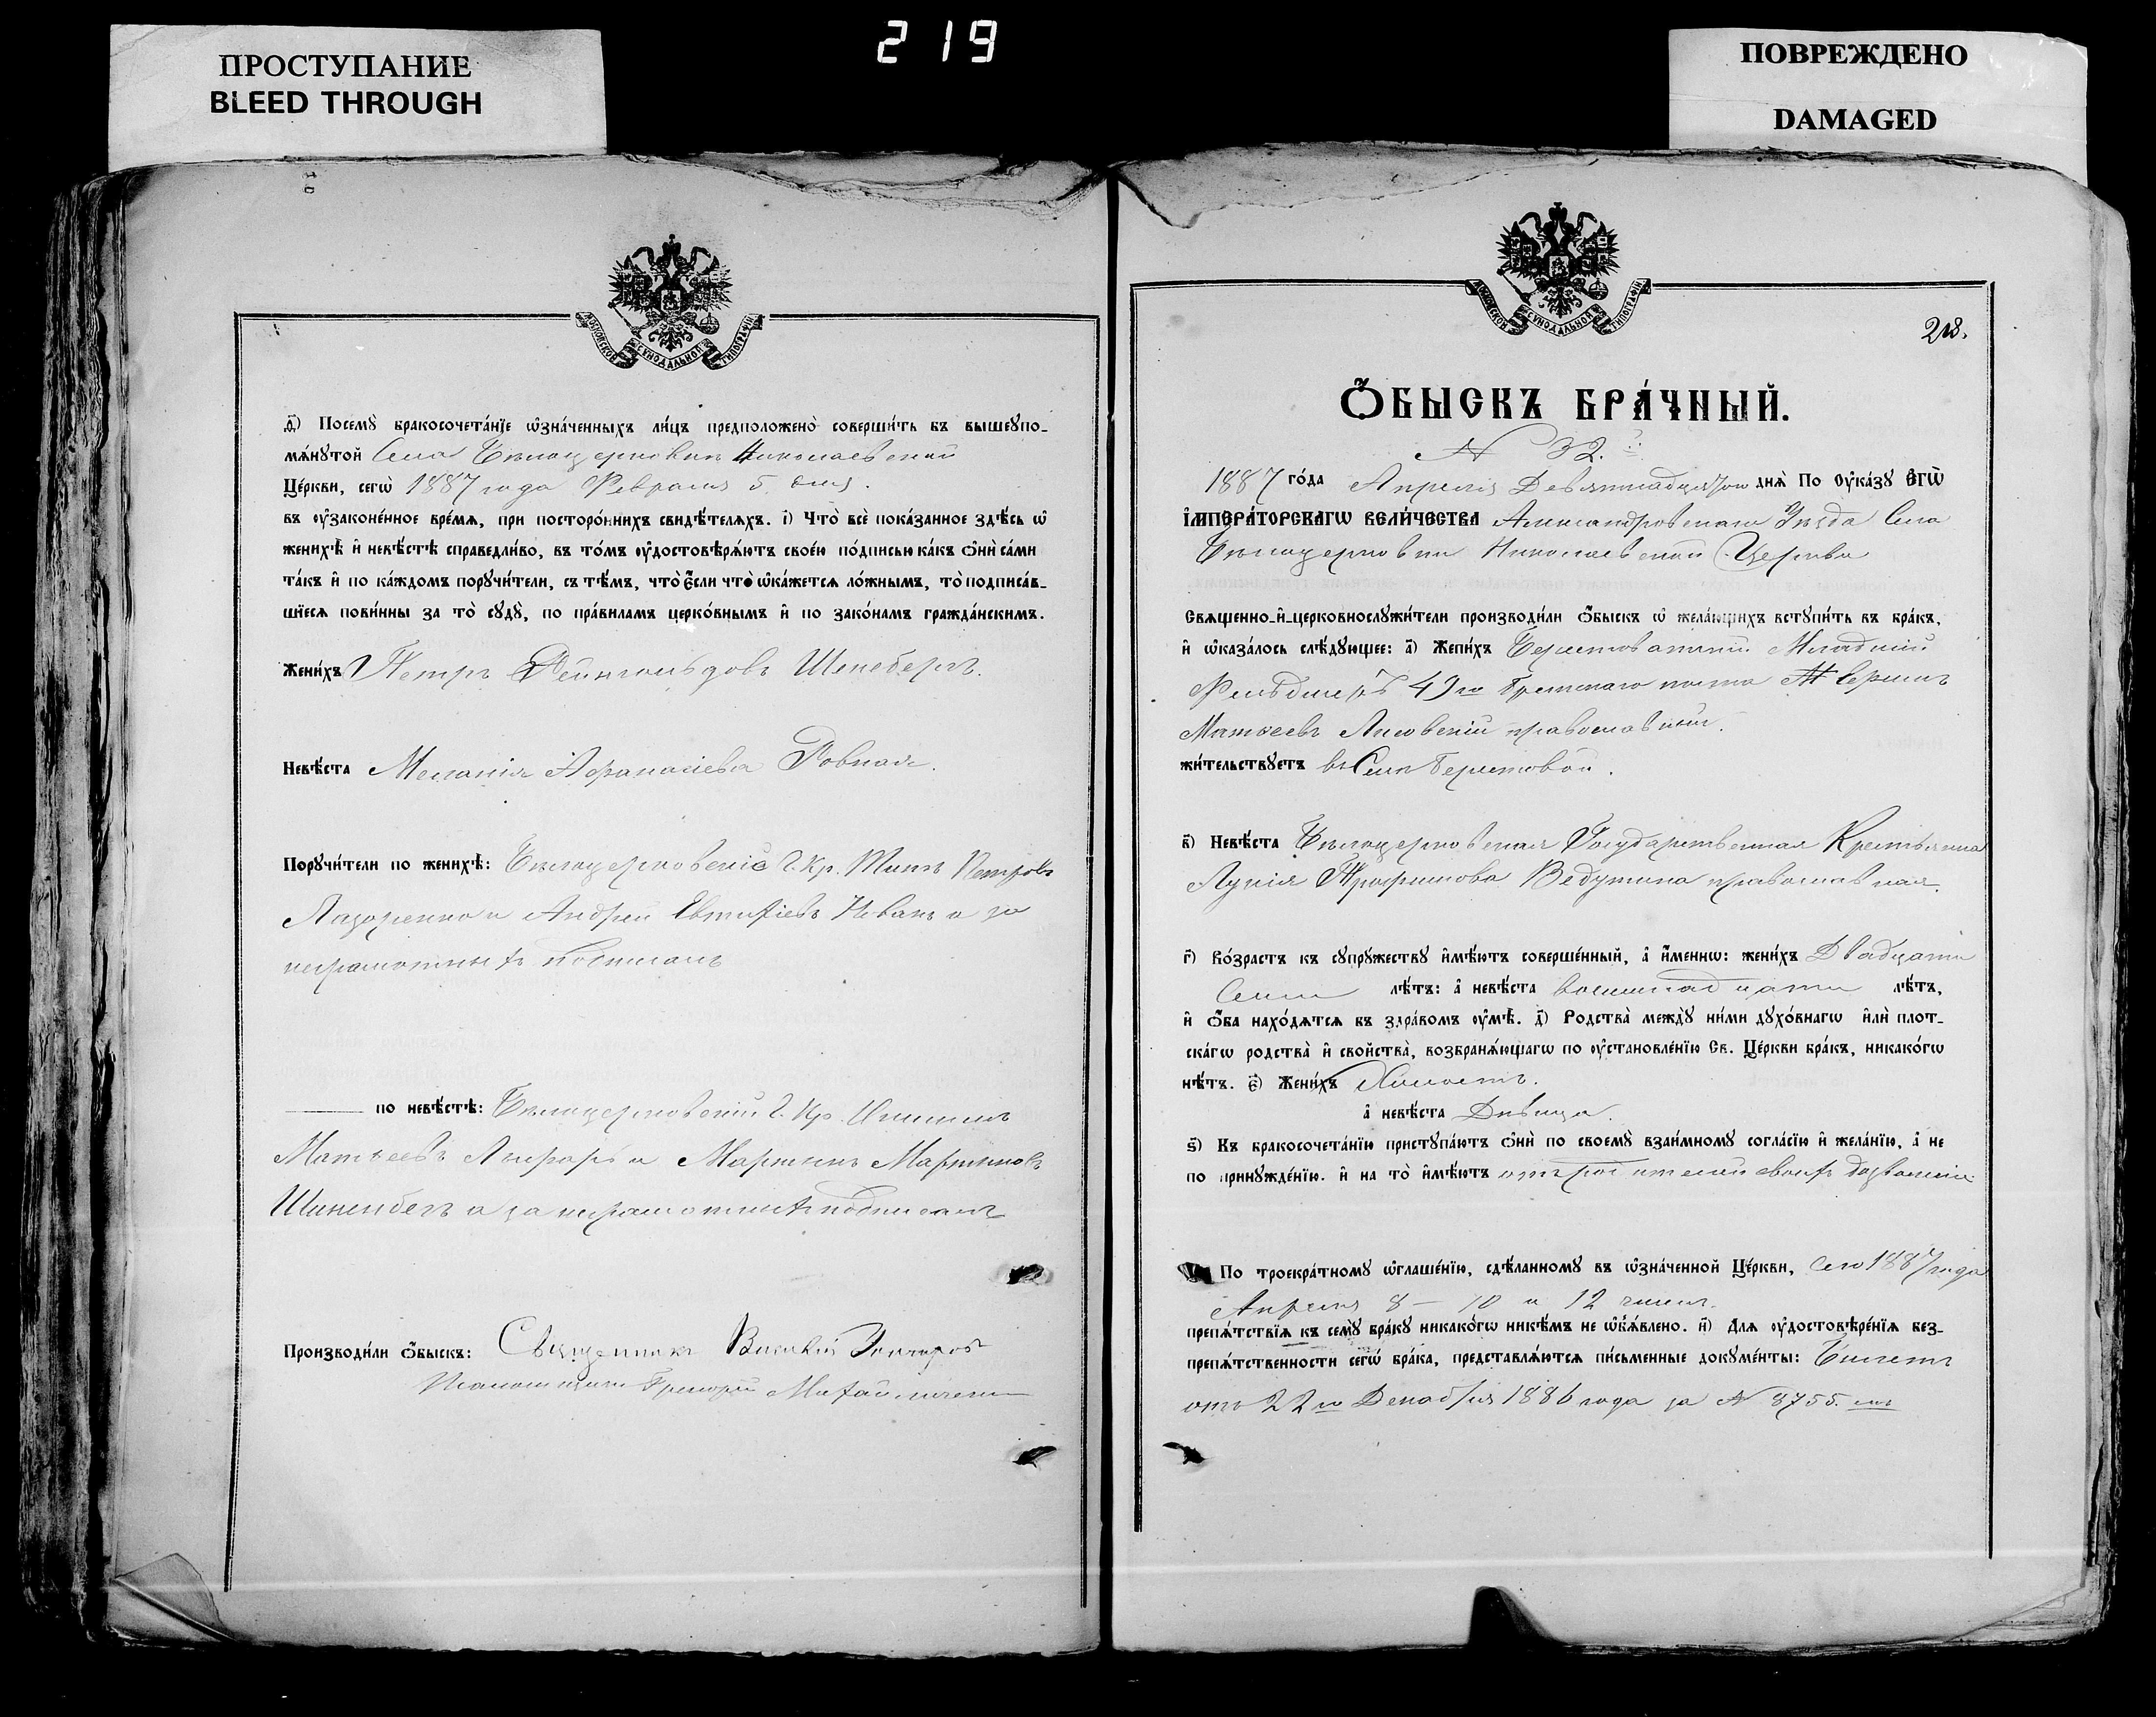 ПРОСТУПАНИЕ
BLEED THROUGH
219
ПОВРЕЖДЕНО
DAMAGED
МОСКОВСКОЙ СѴНОДАЛЬНОЙ ТИПОГРАФІИ
ѳ҃) Посемꙋ̀ бракосочета́нїе ѡ҆зна́ченныхъ ли́цъ предположено̀ соверши́ть въ вышеꙋпо-
мѧ́нꙋтой Села Бѣлоцерковки Николаевской
Це́ркви, сегѡ̀ 1887 года Февраля 5 дня.
въ ᲂу҆зако́ненное вре́мѧ, при посторо́ннихъ свидѣ́телѧхъ. і҃) Что̀ всѐ пока́занное здѣ́сь ѡ҆
женихѣ̀ и҆ невѣ́стѣ справедли́во, въ то́мъ ᲂу҆достовѣрѧ́ютъ свое́ю по́дписью ка́къ ѻ҆нѝ са́ми
та́къ и҆ по ка́ждомъ порꙋчи́тели, съ тѣ́мъ, что̀ є҆́сли что̀ ѡ҆ка́жетсѧ ло́жнымъ, то̀ подписа́в-
шїесѧ пови́нны за то̀ сꙋдꙋ̀, по пра́виламъ церко́внымъ и҆ по зако́намъ гражда́нскимъ.
Жени́хъ Петръ Рейнгольдовъ Шенебергъ.
Невѣ́ста Меланія Афанасіева Ровная.
Порꙋчи́тели по женихѣ̀: Бѣлоцерковскіе Г. Кр. Титъ Петровъ
Лазоренко и Андрей Евтихіевъ и за
неграмотныхъ подписалъ
по невѣ́стѣ: Бѣлоцерковскій Г. Кр.
Матѳеевъ и Мартинъ Мартиновъ
а за неграмотныхъ подписалъ
Производи́ли ѻ҆́быскъ: Священникъ Василій
Псаломщикъ Григорій
МОСКОВСКОЙ СѴНОДАЛЬНОЙ ТИПОГРАФІИ
218.
Ѻ҆́БЫСКЪ БРА́ЧНЫЙ.
N 32.
1887 го́да Апреля Девятнадцатого днѧ̀ По ᲂу҆ка́зꙋ Є҆ГѠ̀
І҆МПЕРА́ТОРСКАГѠ ВЕЛИ́ЧЕСТВА Александровского Уѣзда Села
Бѣлоцерковки Николаевской Церкви
Свѧще́нно-и҆-церковнослꙋжи́тели производи́ли ѻ҆́быскъ ѡ҆ жела́ющихъ встꙋпи́ть въ бра́къ,
и҆ ѡ҆каза́лось слѣ́дꙋющее: а҃) Жени́хъ Берестоватский Младший
Фельдшеръ 49го полка Аверкій
Матѳеевъ Лисовскій православный.
жи́тельствꙋетъ въ Селѣ Берестовой.
в҃) Невѣ́ста Бѣлоцерковская Государственная Крестьянка
Лукія Трофимова Ведутина православная.
г҃) Во́зрастъ къ сꙋпрꙋ́жествꙋ и҆мѣ́ютъ соверше́нный, а҆ и҆́меннѡ: жени́хъ Двадцати
Семи лѣ́тъ: а҆ невѣ́ста восемнадцати лѣ́тъ,
и҆ ѻ҆́ба нахо́дѧтсѧ въ здра́вомъ ᲂу҆мѣ̀. д҃) Родства̀ междꙋ̀ ни́ми дꙋхо́внагѡ и҆лѝ плот-
ска́гѡ родства̀ и҆ сво́йства̀, возбранѧ́ющагѡ по ᲂу҆становле́нїю Св. Це́ркви бра́къ, никако́гѡ
нѣ́тъ. є҃) Жени́хъ Холостъ.
а҆ невѣ́ста Дѣвица.
ѕ҃) Къ бракосочета́нїю пристꙋпа́ютъ ѻ҆нѝ по своемꙋ̀ взаи́мномꙋ согла́сїю и҆ жела́нїю, а҆ не
по принꙋжде́нїю. и҆ на то̀ и҆мѣ́ютъ отъ родителей своихъ дозволеніе.
По троекра́тномꙋ ѡ҆глаше́нїю, сдѣ́ланномꙋ въ ѡ҆зна́ченной Це́ркви, сего 1887 года
Апреля 8 — 10 и 12 чиселъ.
препѧ́тствїѧ къ семꙋ̀ бра́кꙋ никако́гѡ никѣ́мъ не ѡ҆б̾ѧ́влено. и҃) Длѧ ᲂу҆достовѣре́нїѧ без-
препѧ́тственности сегѡ̀ бра́ка, представлѧ́ютсѧ пи́сьменные докꙋме́нты: Билетъ
отъ 22го Декабря 1886 года за N 8755.